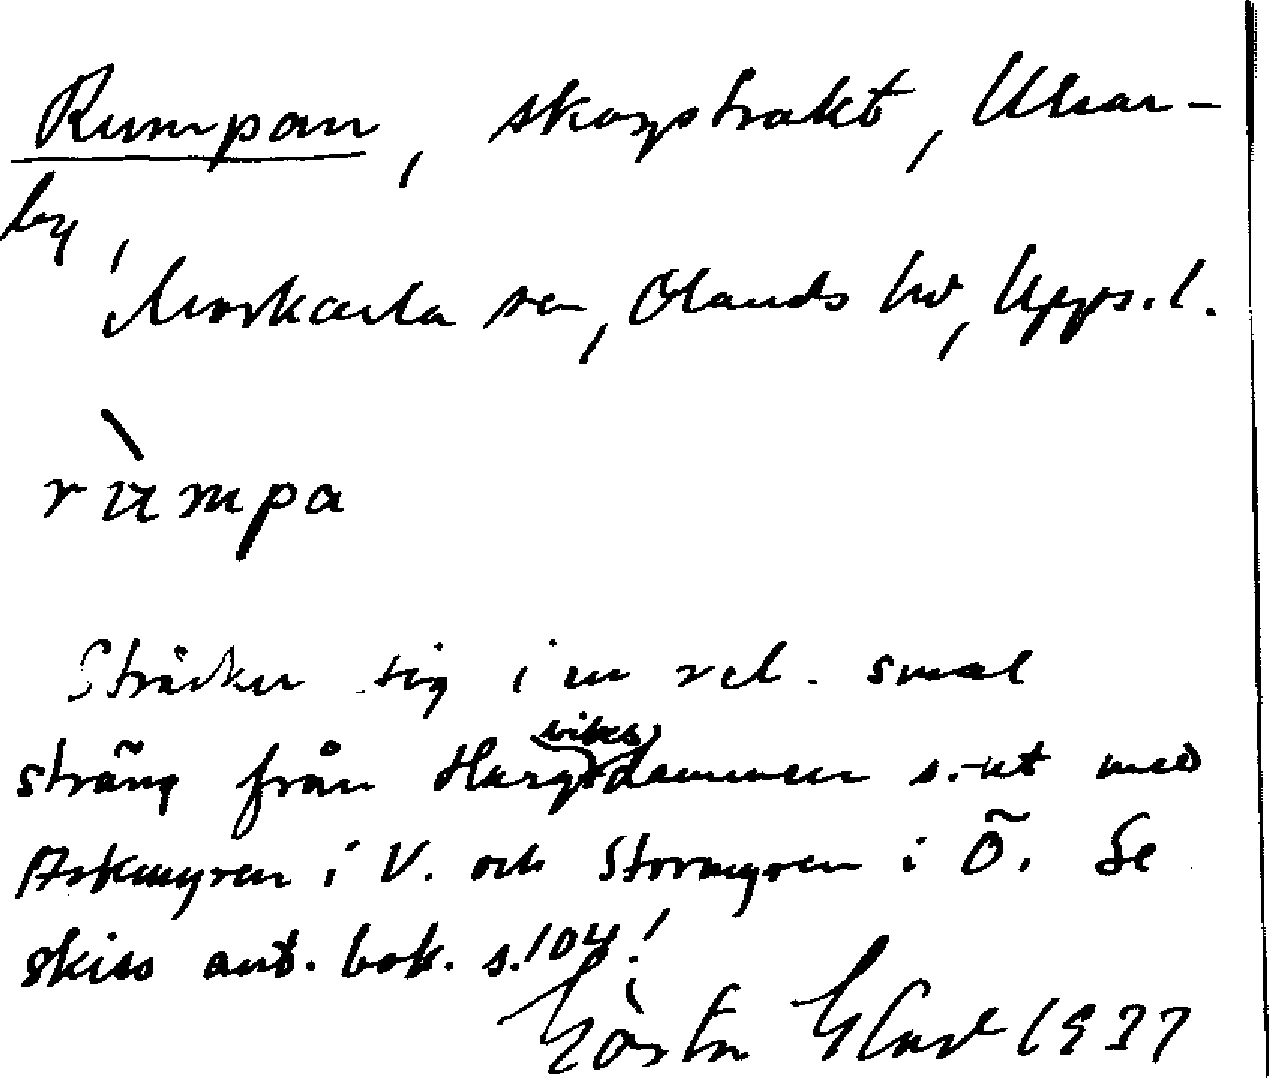 Rumpan, skogstrakt, Ulvar-
by,
Morkarla sn, Olands hd, Upps. l.
rùmpa
Sträcker sig i en rel. smal
sträng från Hargsviksdammen s.-ut med
Askmyren i V. och Stormyren i Ö. Se
skiss ant. bok. s. 104!
Gösta 1937